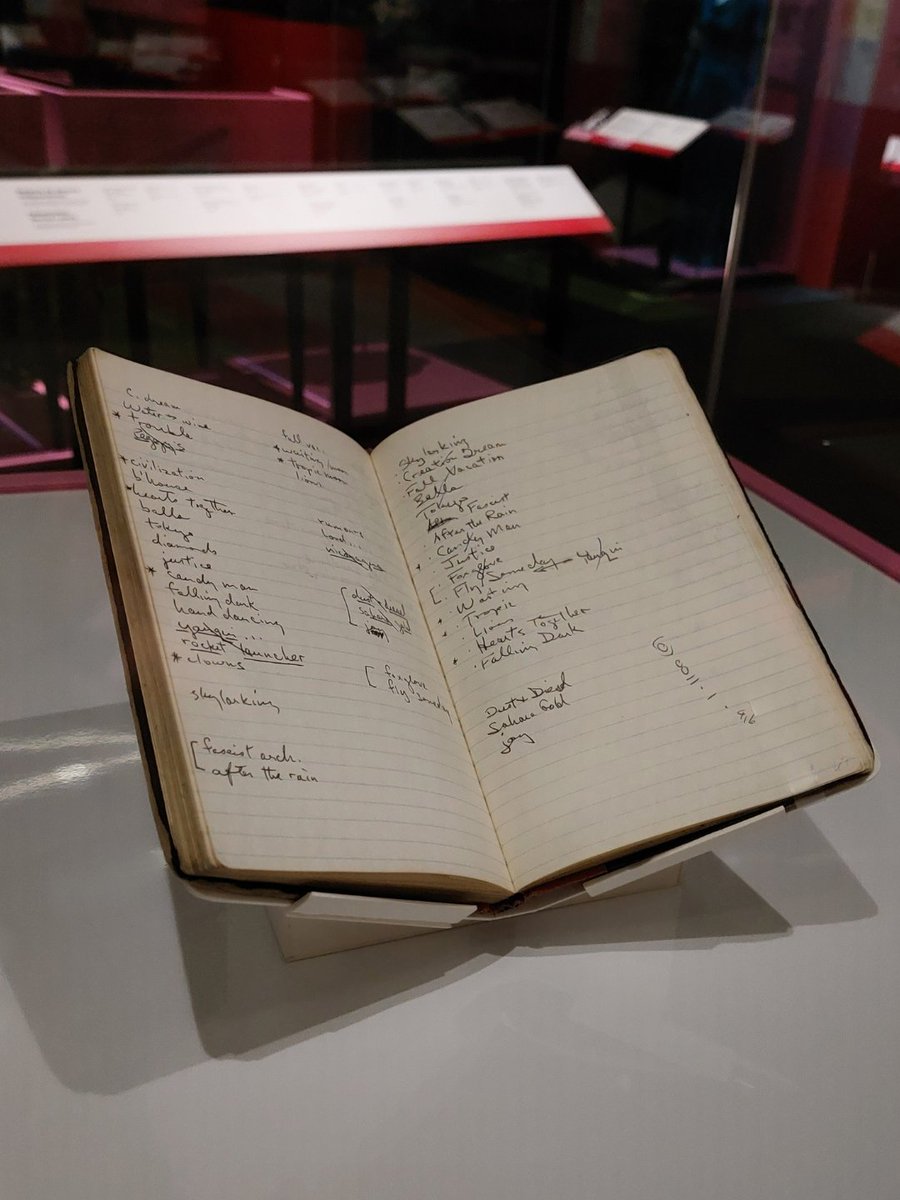 C. dream
Water → wine
* trouble
* civilization
b'house
* hearts together
balla
tokyo
diamonds
justice
* candy man
falling dark
hand dancing
yanqui ...
rocket launcher
* clowns
skylarking
[ fascist arch.
after the rain
fall vac.
* waiting/moon
* tropic moon
lions
rumours
load....
[ dust & diesel
sahara gold
[ foxglove
fly someday
Skylarking
Creation Dream
Fall Vacation
Tokyo
Fascist
After the Rain
Candy Man
Justice
[ Foxglove
Fly Someday
Waiting
Tropic
Lions
Hearts Together
Falling Dark
Dust & Diesel
Sahara Gold
joy